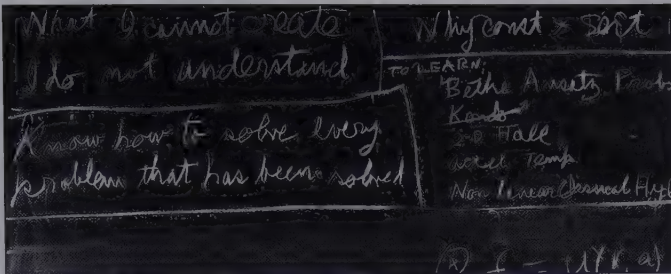 What I cannot create
I do not understand.
Know how to solve every
problem that has been solved
Why const × sort
TO LEARN:
Bethe Ansatz Prob
Kondo
2-D Hall
accel. Temp
Non Linear Classical Hyd